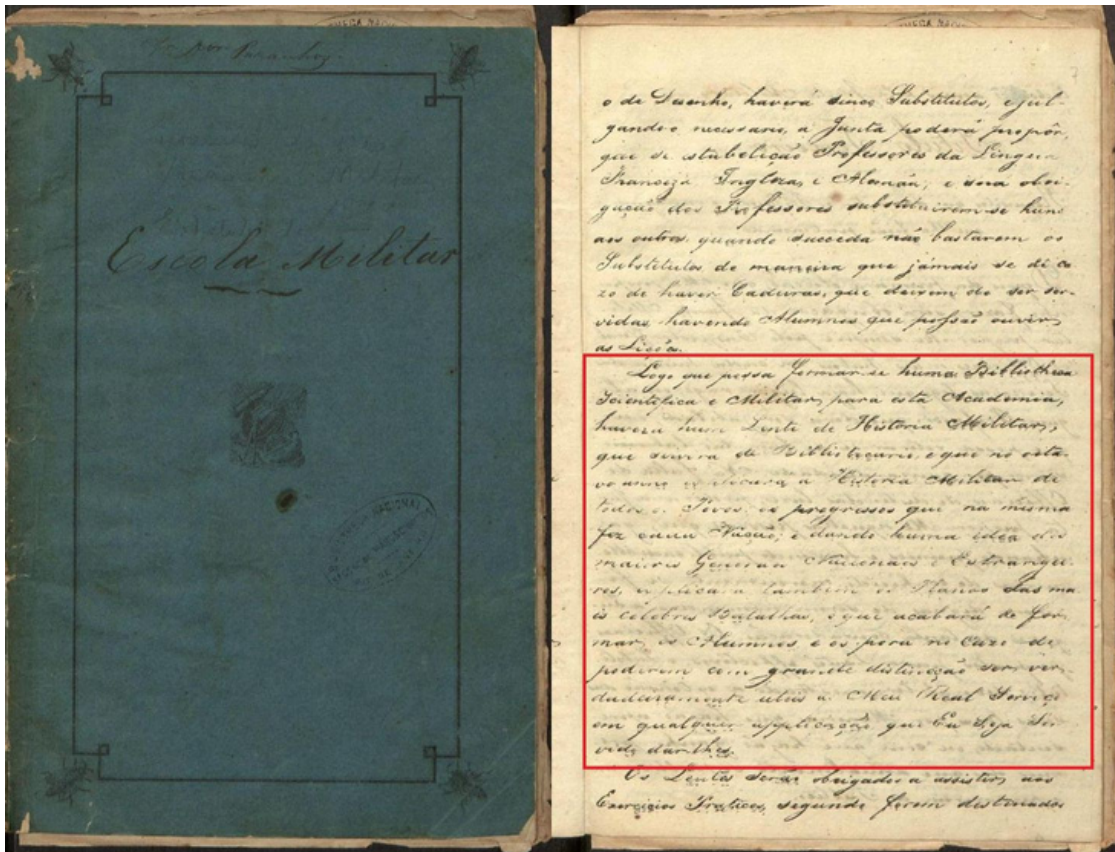 Escola Militar
7
o de Desenho, haverá sinco Substitutos, e jul-
gando-o necessario, a Junta poderá propôr,
que se estabeleção Professores da Lingua
Franceza Ingleza, e Alemãa; e será obri-
gação dos Professores substituirem-se huns
aos outros, quando succeda não bastarem os
Substitutos de maneira que jámais se dê ca
zo de haver Cadeiras, que deixem de ser ser-
vidas havendo Alumnos que possão ouvir
as Lições.
Logo que possa formar-se huma Bibliotheca
Scientifica e Militar, para esta Academia,
haverá hum Lente de Historia Militar,
que servirá de Bibliotecario e que no oita-
vo anno explicará a Historia Militar de
todos os Povos; os progressos que na mesma
fez cada Nação; e dando huma idéa dos
maiores Generaes Nacionaes e Estrangei-
ros, explicará tambem os Planos das ma
is celebres Batalhas, o que acabará de for-
mar os Alumnos e os porá no Cazo de
poderem com grande distincção ser ver-
dadeiramente uteis a Meu Real Serviço
em qualquer applicação que Eu Seja Ser-
vido dar-lhes.
Os Lentes serão obrigados a assistir, aos
Exercicios Praticos, segundo forem destinados